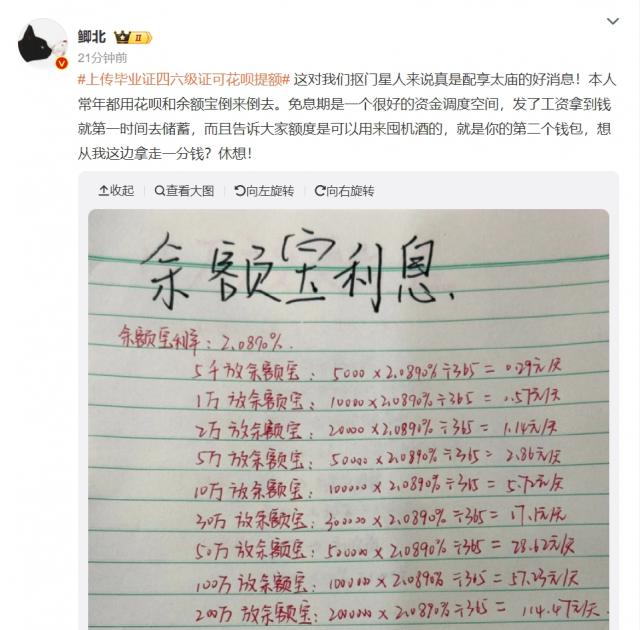 鲫北
II
21分钟前
#上传毕业证四六级证可花呗提额# 这对我们抠门星人来说真是配享太庙的好消息！本人
常年都用花呗和余额宝倒来倒去。免息期是一个很好的资金调度空间，发了工资拿到钱
就第一时间去储蓄，而且告诉大家额度是可以用来囤机酒的，就是你的第二个钱包，想
从我这边拿走一分钱？休想！
收起 查看大图 向左旋转 向右旋转
余额宝利息.
余额宝利率：2.0890%.
5千放余额宝：5000×2.0890%÷365=0.29元/天
1万放余额宝：10000×2.0890%÷365=0.57元/天
2万放余额宝：20000×2.0890%÷365=1.14元/天
5万放余额宝：50000×2.0890%÷365=2.86元/天
10万放余额宝：100000×2.0890%÷365=5.72元/天
30万放余额宝：300000×2.0890%÷365=17.17元/天
50万放余额宝：500000×2.0890%÷365=28.62元/天
100万放余额宝：1000000×2.0890%÷365=57.23元/天
200万放余额宝：2000000×2.0890%÷365=114.47元/天.